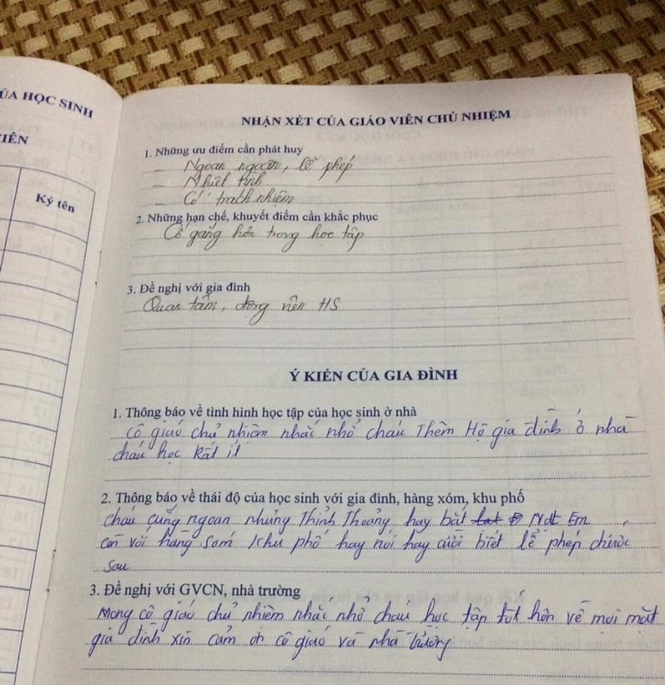 ỦA HỌC SINH
IÊN
Ký tên
NHẬN XÉT CỦA GIÁO VIÊN CHỦ NHIỆM
1. Những ưu điểm cần phát huy
Ngoan ngoãn, lễ phép
Nhiệt tình
Có trách nhiệm
2. Những hạn chế, khuyết điểm cần khắc phục
Cố gắng hơn trong học tập
3. Đề nghị với gia đình
Quan tâm, động viên HS
Ý KIẾN CỦA GIA ĐÌNH
1. Thông báo về tình hình học tập của học sinh ở nhà
cô giáo chủ nhiệm nhắc nhở cháu Thêm Hộ gia đình ở nhà
cháu học Rất ít
2. Thông báo về thái độ của học sinh với gia đình, hàng xóm, khu phố
cháu cũng ngoan nhưng Thỉnh Thoảng hay bắt Nạt Em
còn với hàng sóm khu phố hay nói hay cười biết lễ phép
sau
3. Đề nghị với GVCN, nhà trường
Mong cô giáo chủ nhiệm nhắc nhở cháu học tập tốt hơn về mọi mặt
gia đình xin cảm ơn cô giáo và nhà trường